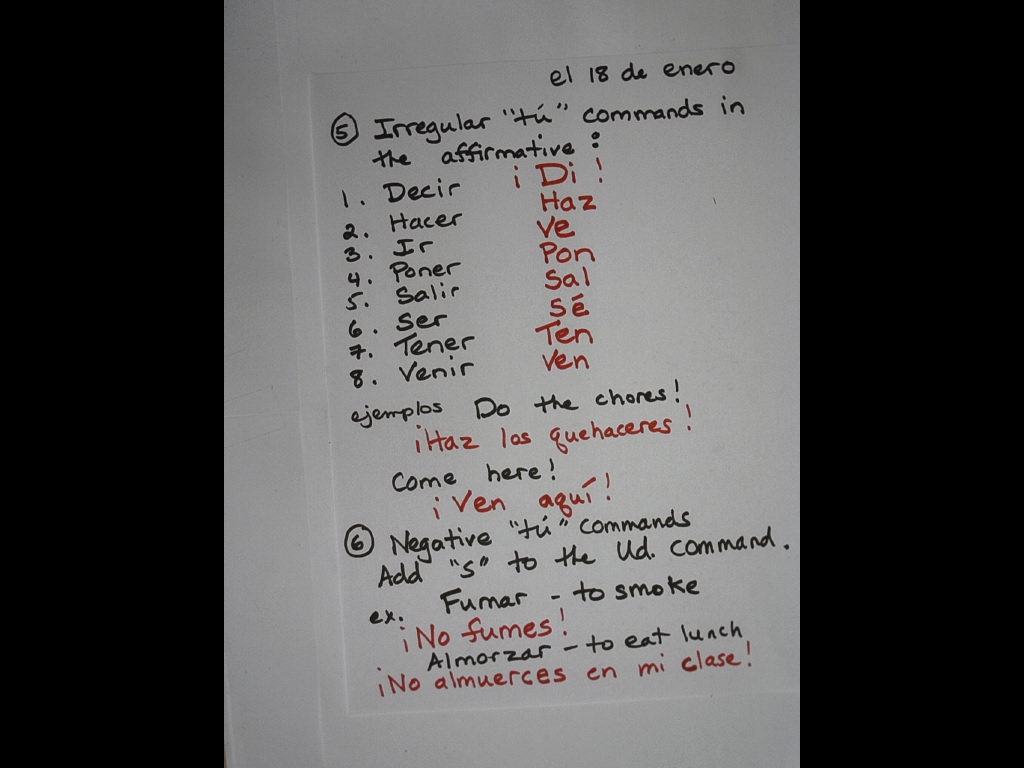 el 18 de enero
5 Irregular "tú" commands in
the affirmative :
1. Decir ¡Di!
2. Hacer Haz
3. Ir Ve
4. Poner Pon
5. Salir Sal
6. Ser Sé
7. Tener Ten
8. Venir Ven
ejemplos Do the chores!
¡Haz los quehaceres!
Come here!
¡Ven aquí!
6 Negative "tú" commands
Add "s" to the Ud. command.
ex. Fumar - to smoke
¡No fumes!
Almorzar - to eat lunch
¡No almuerces en mi clase!